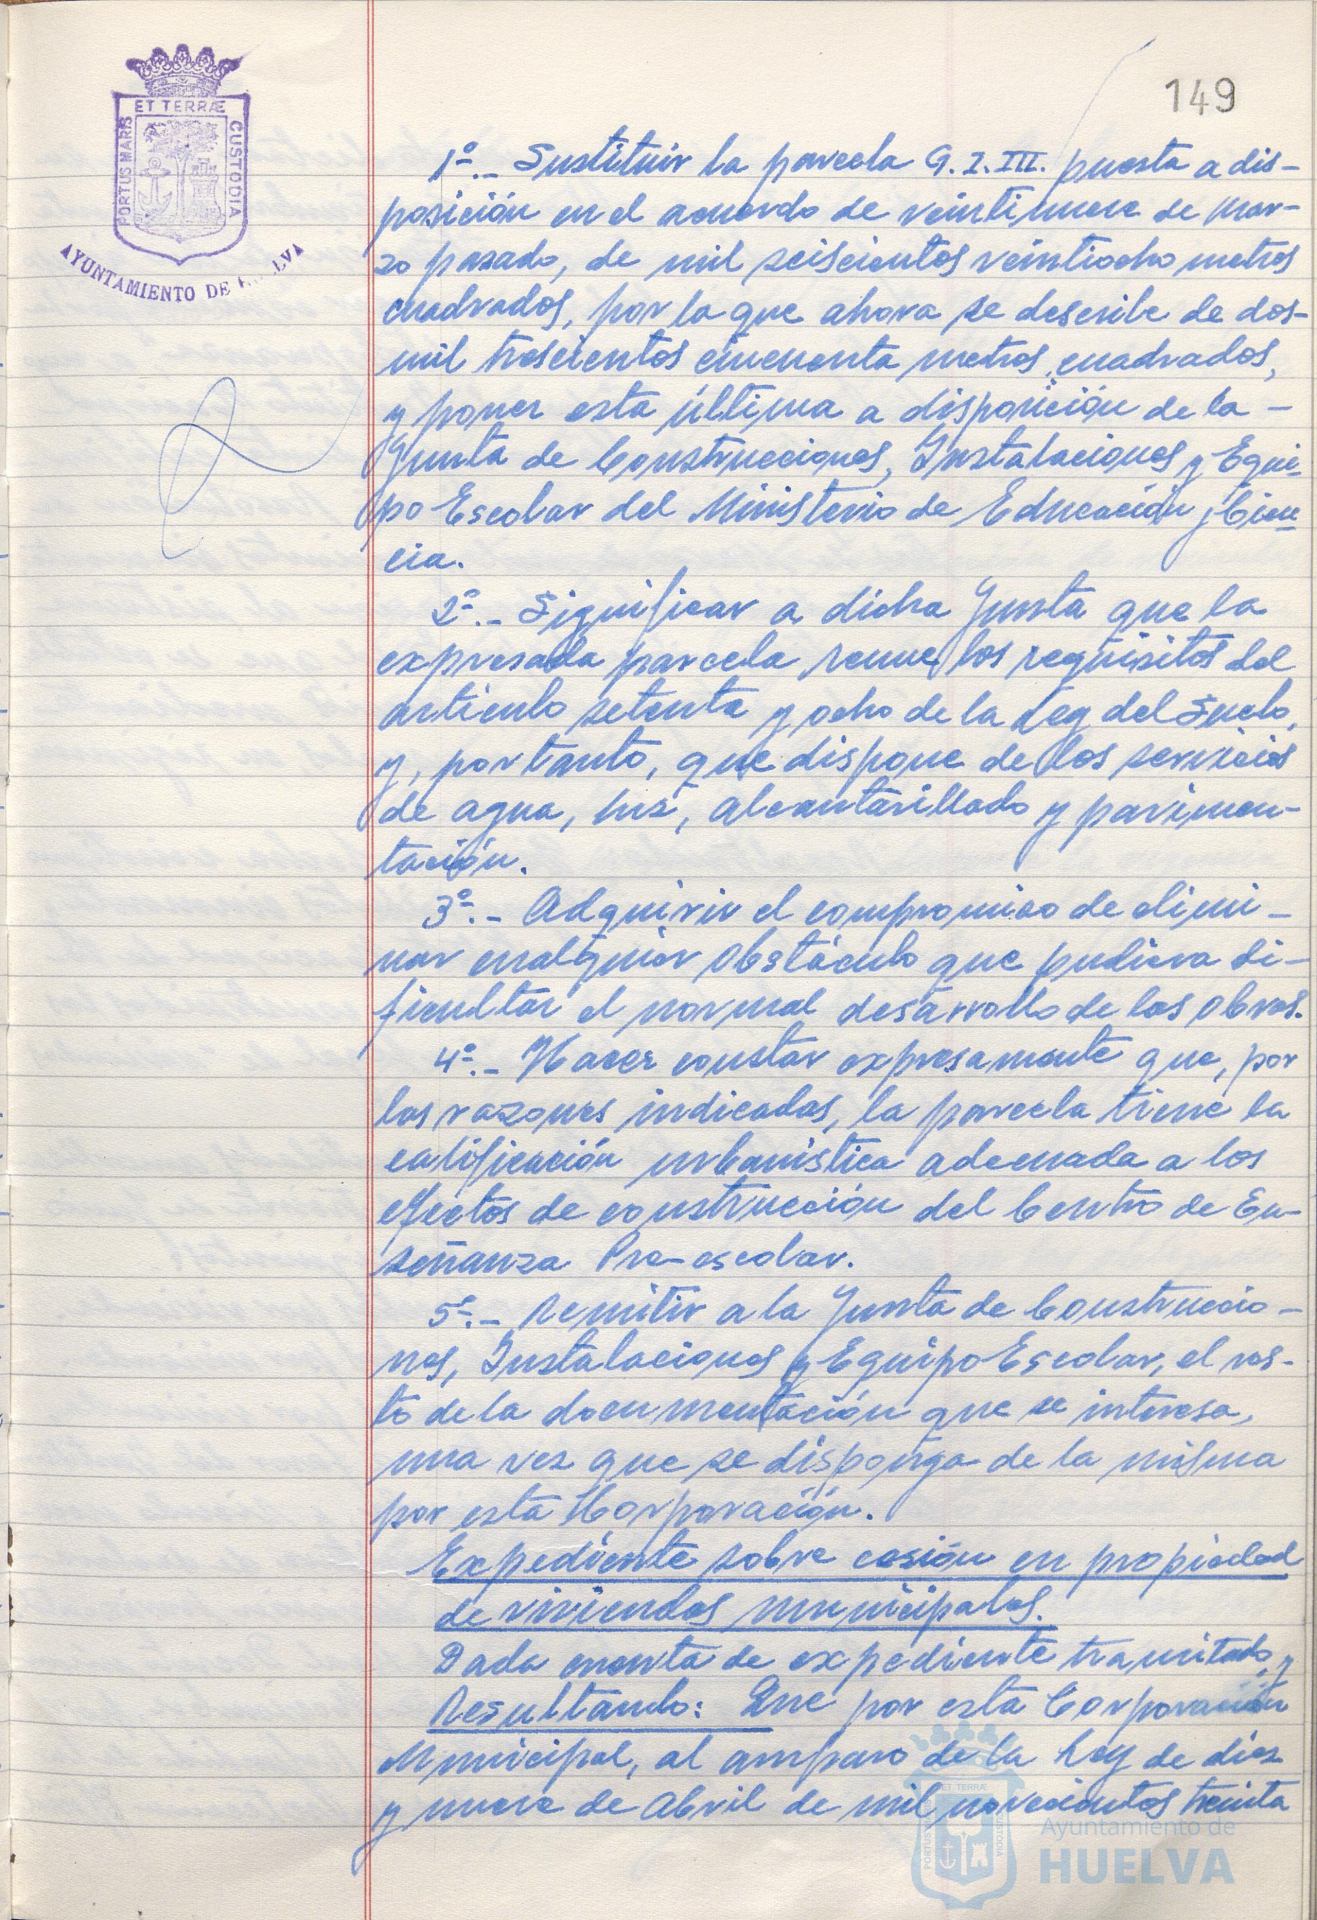 149
ET TERRÆ
PORTUS MARIS
CUSTODIA
AYUNTAMIENTO DE HUELVA
1º.- Sustituir la parcela G.I.III. puesta a dis-
posición en el acuerdo de veintinueve de mar-
zo pasado, de mil seiscientos veintiocho metros
cuadrados, por la que ahora se describe de dos-
mil trescientos cincuenta metros cuadrados,
y poner esta última a disposición de la -
Junta de Construcciones, Instalaciones y Equi-
po Escolar del Ministerio de Educación y Cien-
cia.
2º.- Significar a dicha Junta que la
expresada parcela reune los requisitos del
artículo setenta y ocho de la Ley del Suelo,
y, por tanto, que dispone de los servicios
de agua, luz, alcantarillado y pavimen-
tación.
3º.- Adquirir el compromiso de elimi-
nar cualquier obstáculo que pudiera di-
ficultar el normal desarrollo de las obras.
4º.- Hacer constar expresamente que, por
las razones indicadas, la parcela tiene la
calificación urbanística adecuada a los
efectos de construcción del Centro de En-
señanza Pre-escolar.
5º.- Remitir a la Junta de Construccio-
nes, Instalaciones y Equipo Escolar, el res-
to de la documentación que se interesa,
una vez que se disponga de la misma
por esta Corporación.
Expediente sobre cesión en propiedad
de viviendas municipales.
Dada cuenta de expediente tramitado, y
Resultando: Que por esta Corporación
Municipal, al amparo de la Ley de diez
y nueve de Abril de mil novecientos treinta
ET TERRÆ
PORTUS MARIS
CUSTODIA
Ayuntamiento de
HUELVA